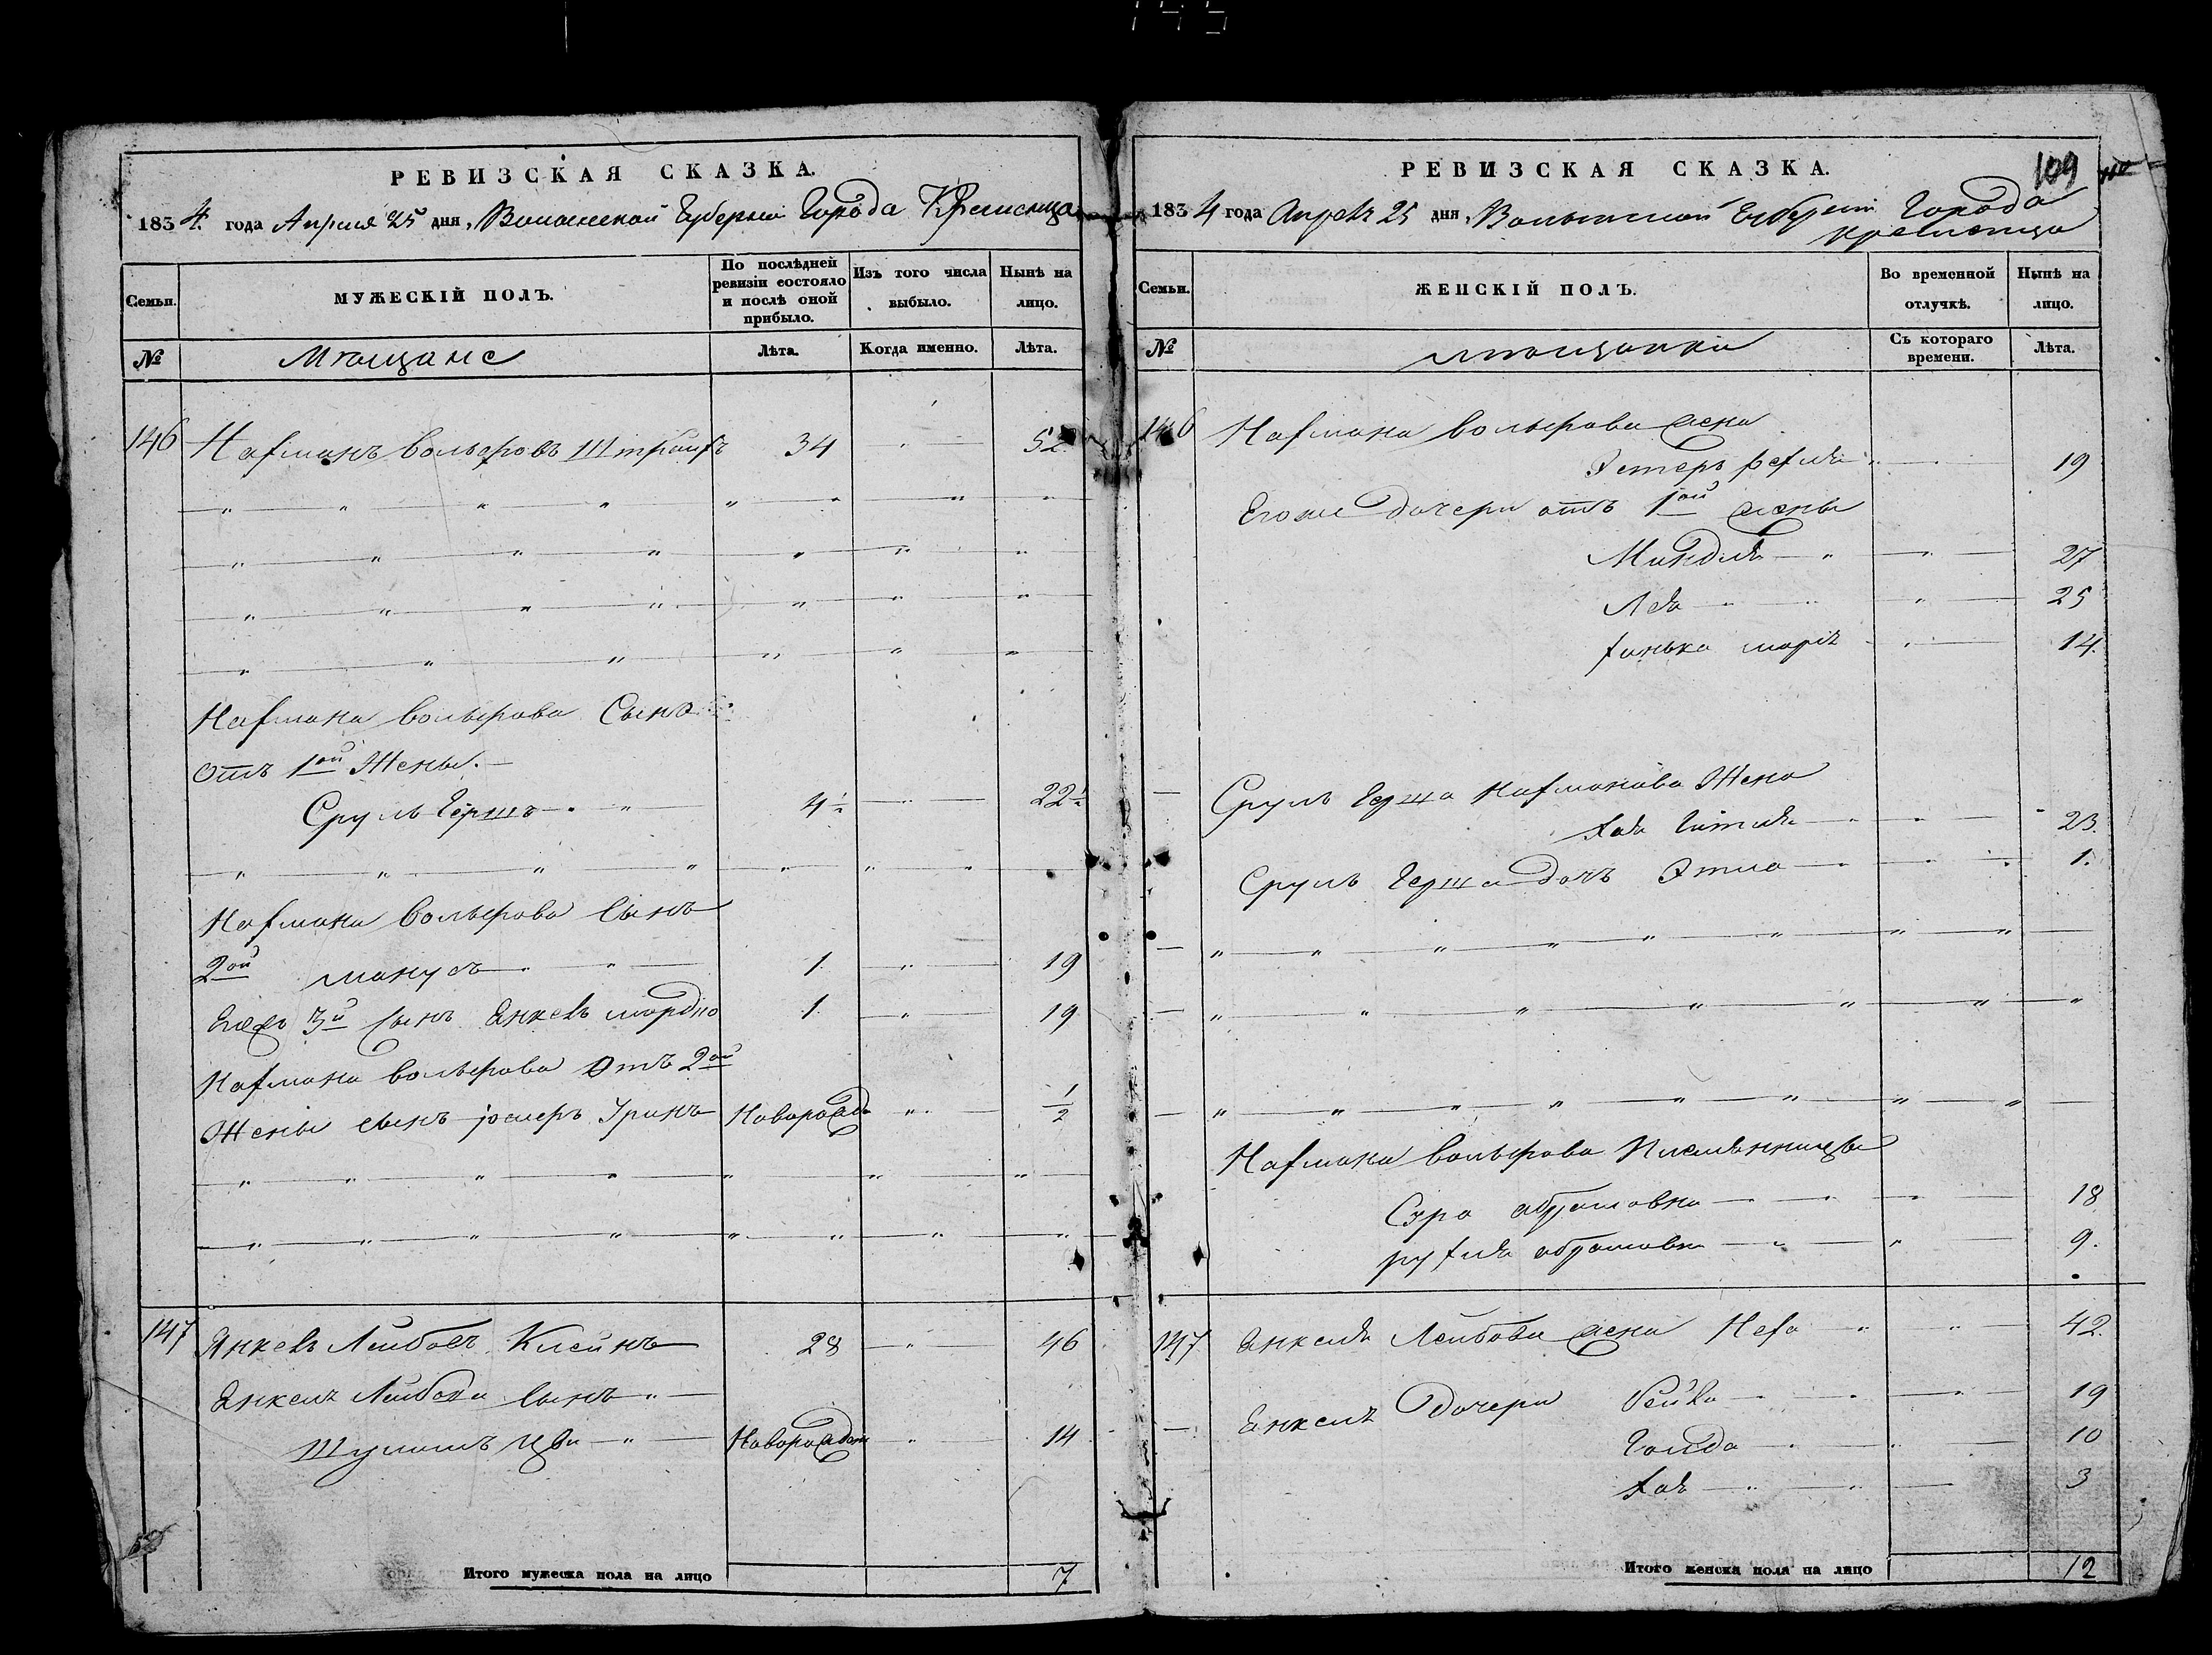 РЕВИЗСКАЯ СКАЗКА.
1834 года Апреля 25 дня, Волынской Губернии Города Кременца
Семьи.
МУЖЕСКІЙ ПОЛЪ.
По послѣдней ревизіи состояло и послѣ оной прибыло.
Изъ того числа выбыло.
Нынѣ на лицо.
№
Мѣщане
Лѣта.
Когда именно.
Лѣта.
146 Нахманъ Вольфовъ Штрайхъ 34 52
Нахмана Вольфова Сынъ
отъ 1ой Жены.
Сруль Гершъ 4½ 22½
Нахмана Вольфова Сынъ
2ой Манусъ 1. 19
Егожъ 3й Сынъ Янкель Мордко 1. 19
Нахмана Вольфова Отъ 2ой
Жены сынъ Новорожд ½
147 Янкель Лейбовъ Клейнъ 28 46
Янкеля Лейбова Сынъ
Шулимъ Новорожден 14
Итого мужеска пола на лицо 7
109
РЕВИЗСКАЯ СКАЗКА.
1834 года Апреля 25 дня, Волынской Губерніи Города
Кременца
Семьи.
ЖЕНСКІЙ ПОЛЪ.
Во временной отлучкѣ.
Нынѣ на лицо.
№
мѣщанки
Съ котораго времени.
Лѣта.
146 Нахмана Вольфова жена
Эстеръ Рехля 19
Егоже дочери отъ 1ой жены
Миндля 27
Лея 25
14.
Сруль Герша Нахманова Жена
Хая Гитля 23.
Сруль Герша дочь Этла 1.
Нахмана Вольфова Племянницы
Сура Абрамовна 18
Рухля Абрамовна 9.
147 Янкеля Лейбова жена Неха 42.
Янкеля Дочери Рейза 19
Голда 10
Хая 3
Итого женска пола на лицо 12